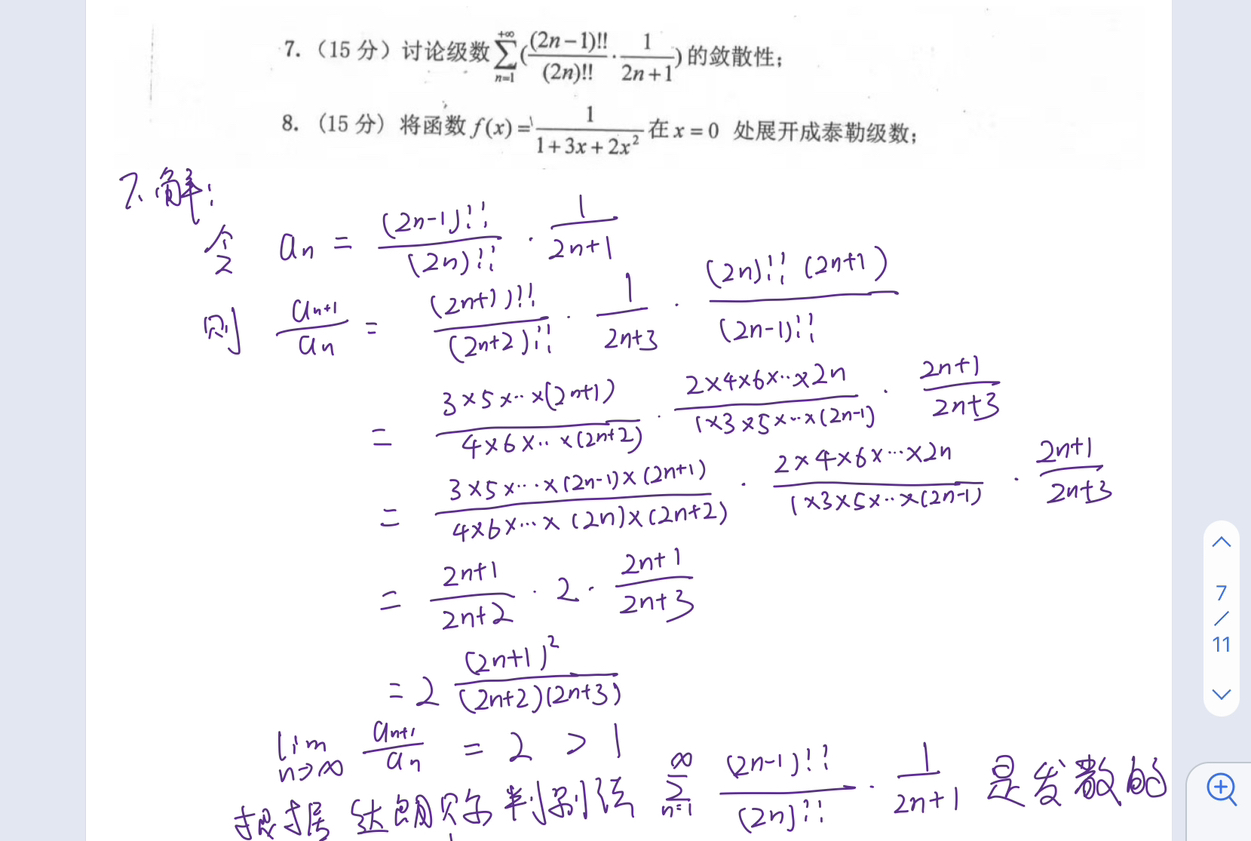 7. （15 分）讨论级数 \sum_{n=1}^{+\infty}(\frac{(2n-1)!!}{(2n)!!}\cdot\frac{1}{2n+1}) 的敛散性；
8. （15 分）将函数 f(x)=\frac{1}{1+3x+2x^2} 在 x=0 处展开成泰勒级数；
7. 解：
令 a_n = \frac{(2n-1)!!}{(2n)!!} \cdot \frac{1}{2n+1}
则 \frac{a_{n+1}}{a_n} = \frac{(2n+1)!!}{(2n+2)!!} \cdot \frac{1}{2n+3} \cdot \frac{(2n)!! (2n+1)}{(2n-1)!!}
= \frac{3×5×…×(2n+1)}{4×6×…×(2n+2)} \cdot \frac{2×4×6×…×2n}{1×3×5×…×(2n-1)} \cdot \frac{2n+1}{2n+3}
= \frac{3×5×…×(2n-1)×(2n+1)}{4×6×…×(2n)×(2n+2)} \cdot \frac{2×4×6×…×2n}{1×3×5×…×(2n-1)} \cdot \frac{2n+1}{2n+3}
= \frac{2n+1}{2n+2} \cdot 2 \cdot \frac{2n+1}{2n+3}
= 2 \frac{(2n+1)^2}{(2n+2)(2n+3)}
\lim_{n→∞} \frac{a_{n+1}}{a_n} = 2 > 1
根据达朗贝尔判别法 \sum_{n=1}^{∞} \frac{(2n-1)!!}{(2n)!!} \cdot \frac{1}{2n+1} 是发散的
7
/
11